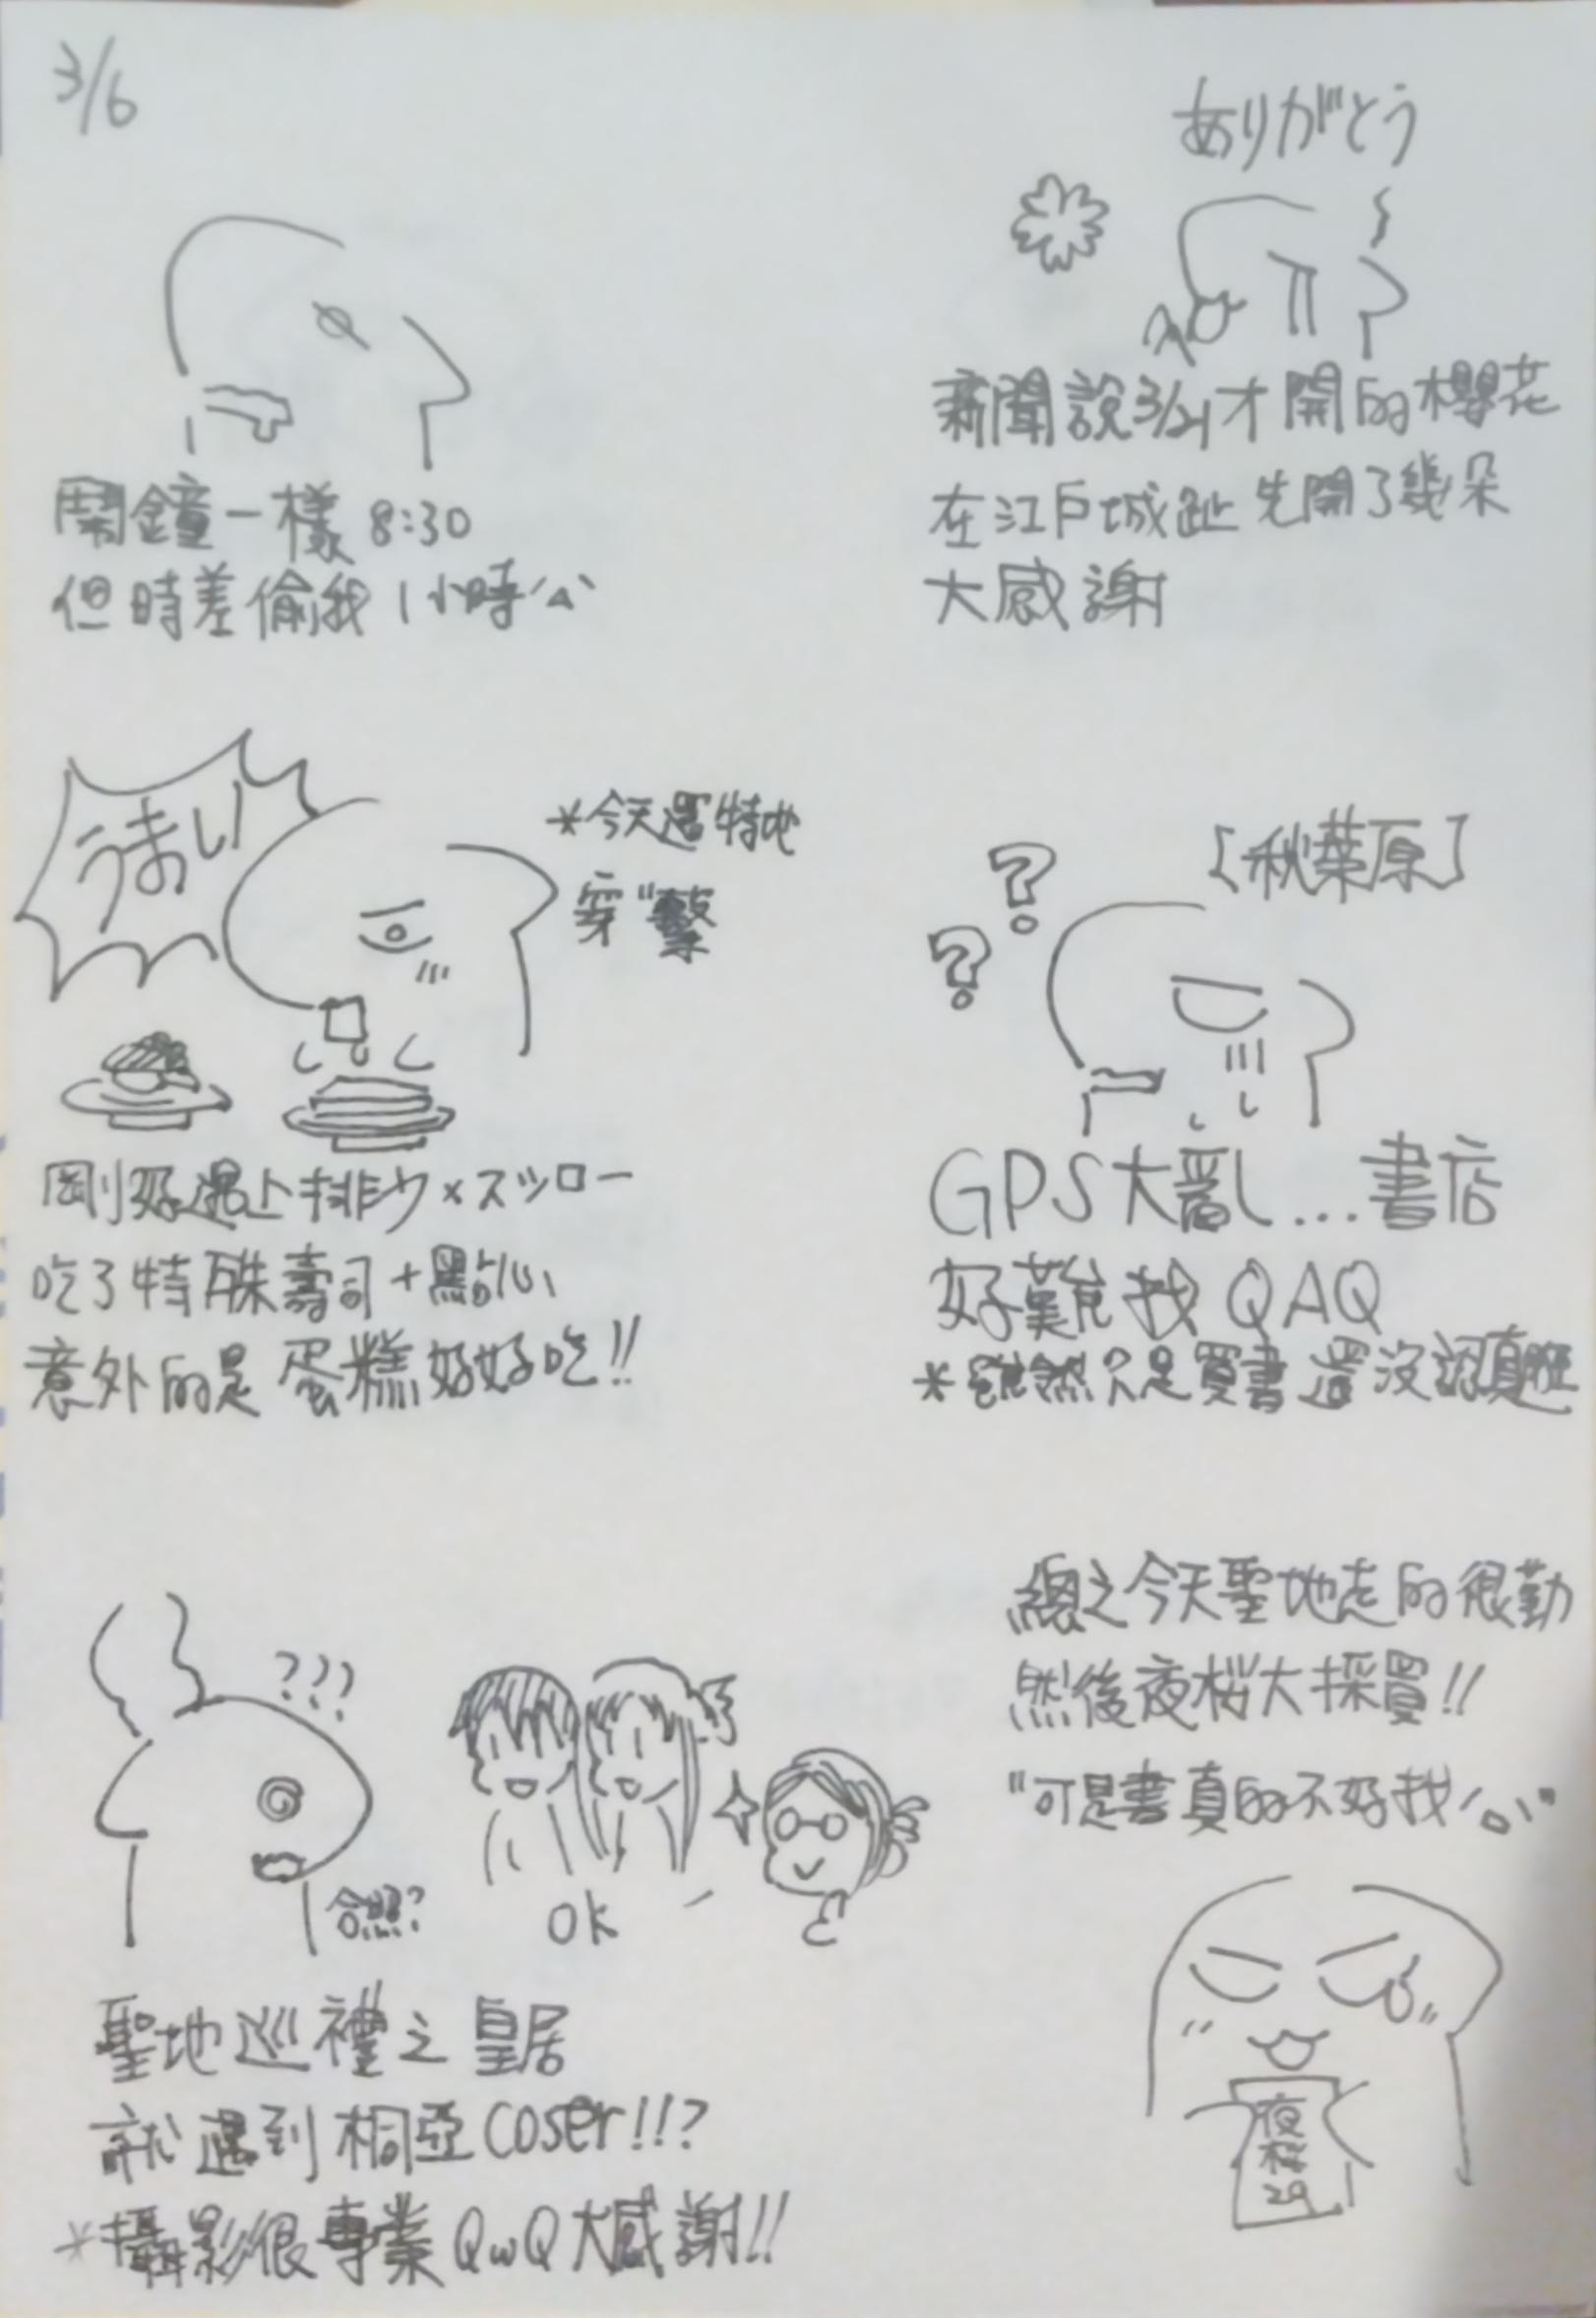 3/6
鬧鐘一樣 8:30
但時差偷我 1小時
うまい
*今天還特地
穿"擊
剛好遇上排少×スシロー
吃了特殊壽司+點心
意外的是蛋糕好好吃!!
???
合照?
OK
聖地巡禮之皇居
就遇到桐亞coser!!?
*攝影很專業QwQ大感謝!!
ありがとう
新聞說3/21才開的櫻花
在江戶城趾先開了幾朵
大感謝
[秋葉原]
??
GPS大亂...書店
好難找 QAQ
*雖然只是買書還沒認真逛
總之今天聖地走的很勤
然後夜桜大採買!!
"可是書真的不好找
夜桜
29